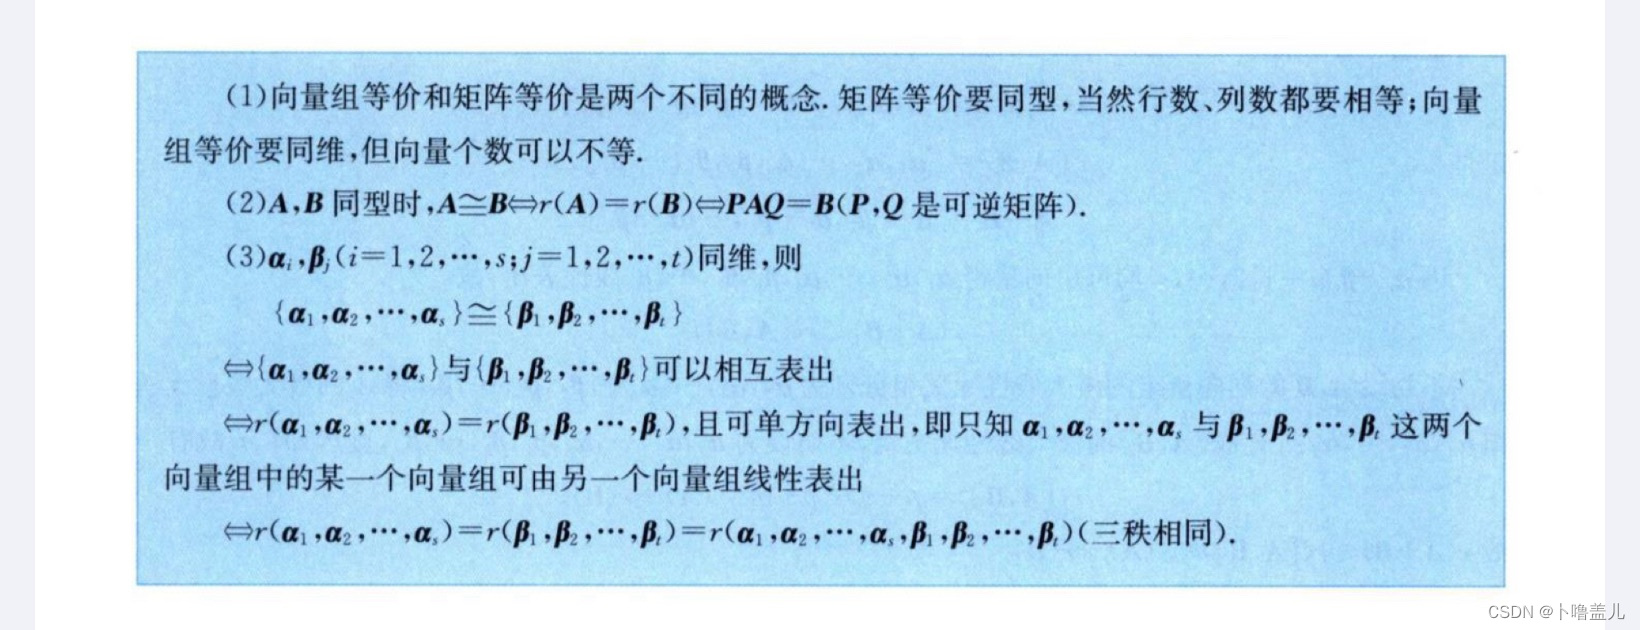 (1)向量组等价和矩阵等价是两个不同的概念.矩阵等价要同型,当然行数、列数都要相等;向量
组等价要同维,但向量个数可以不等.
(2)A,B同型时,A≅B⇔r(A)=r(B)⇔PAQ=B(P,Q是可逆矩阵).
(3)αᵢ,βⱼ(i=1,2,⋯,s;j=1,2,⋯,t)同维,则
{α₁,α₂,⋯,αₛ}≅{β₁,β₂,⋯,βₜ}
⇔{α₁,α₂,⋯,αₛ}与{β₁,β₂,⋯,βₜ}可以相互表出
⇔r(α₁,α₂,⋯,αₛ)=r(β₁,β₂,⋯,βₜ),且可单方向表出,即只知α₁,α₂,⋯,αₛ与β₁,β₂,⋯,βₜ这两个
向量组中的某一个向量组可由另一个向量组线性表出
⇔r(α₁,α₂,⋯,αₛ)=r(β₁,β₂,⋯,βₜ)=r(α₁,α₂,⋯,αₛ,β₁,β₂,⋯,βₜ)(三秩相同).
CSDN @卜噜盖儿